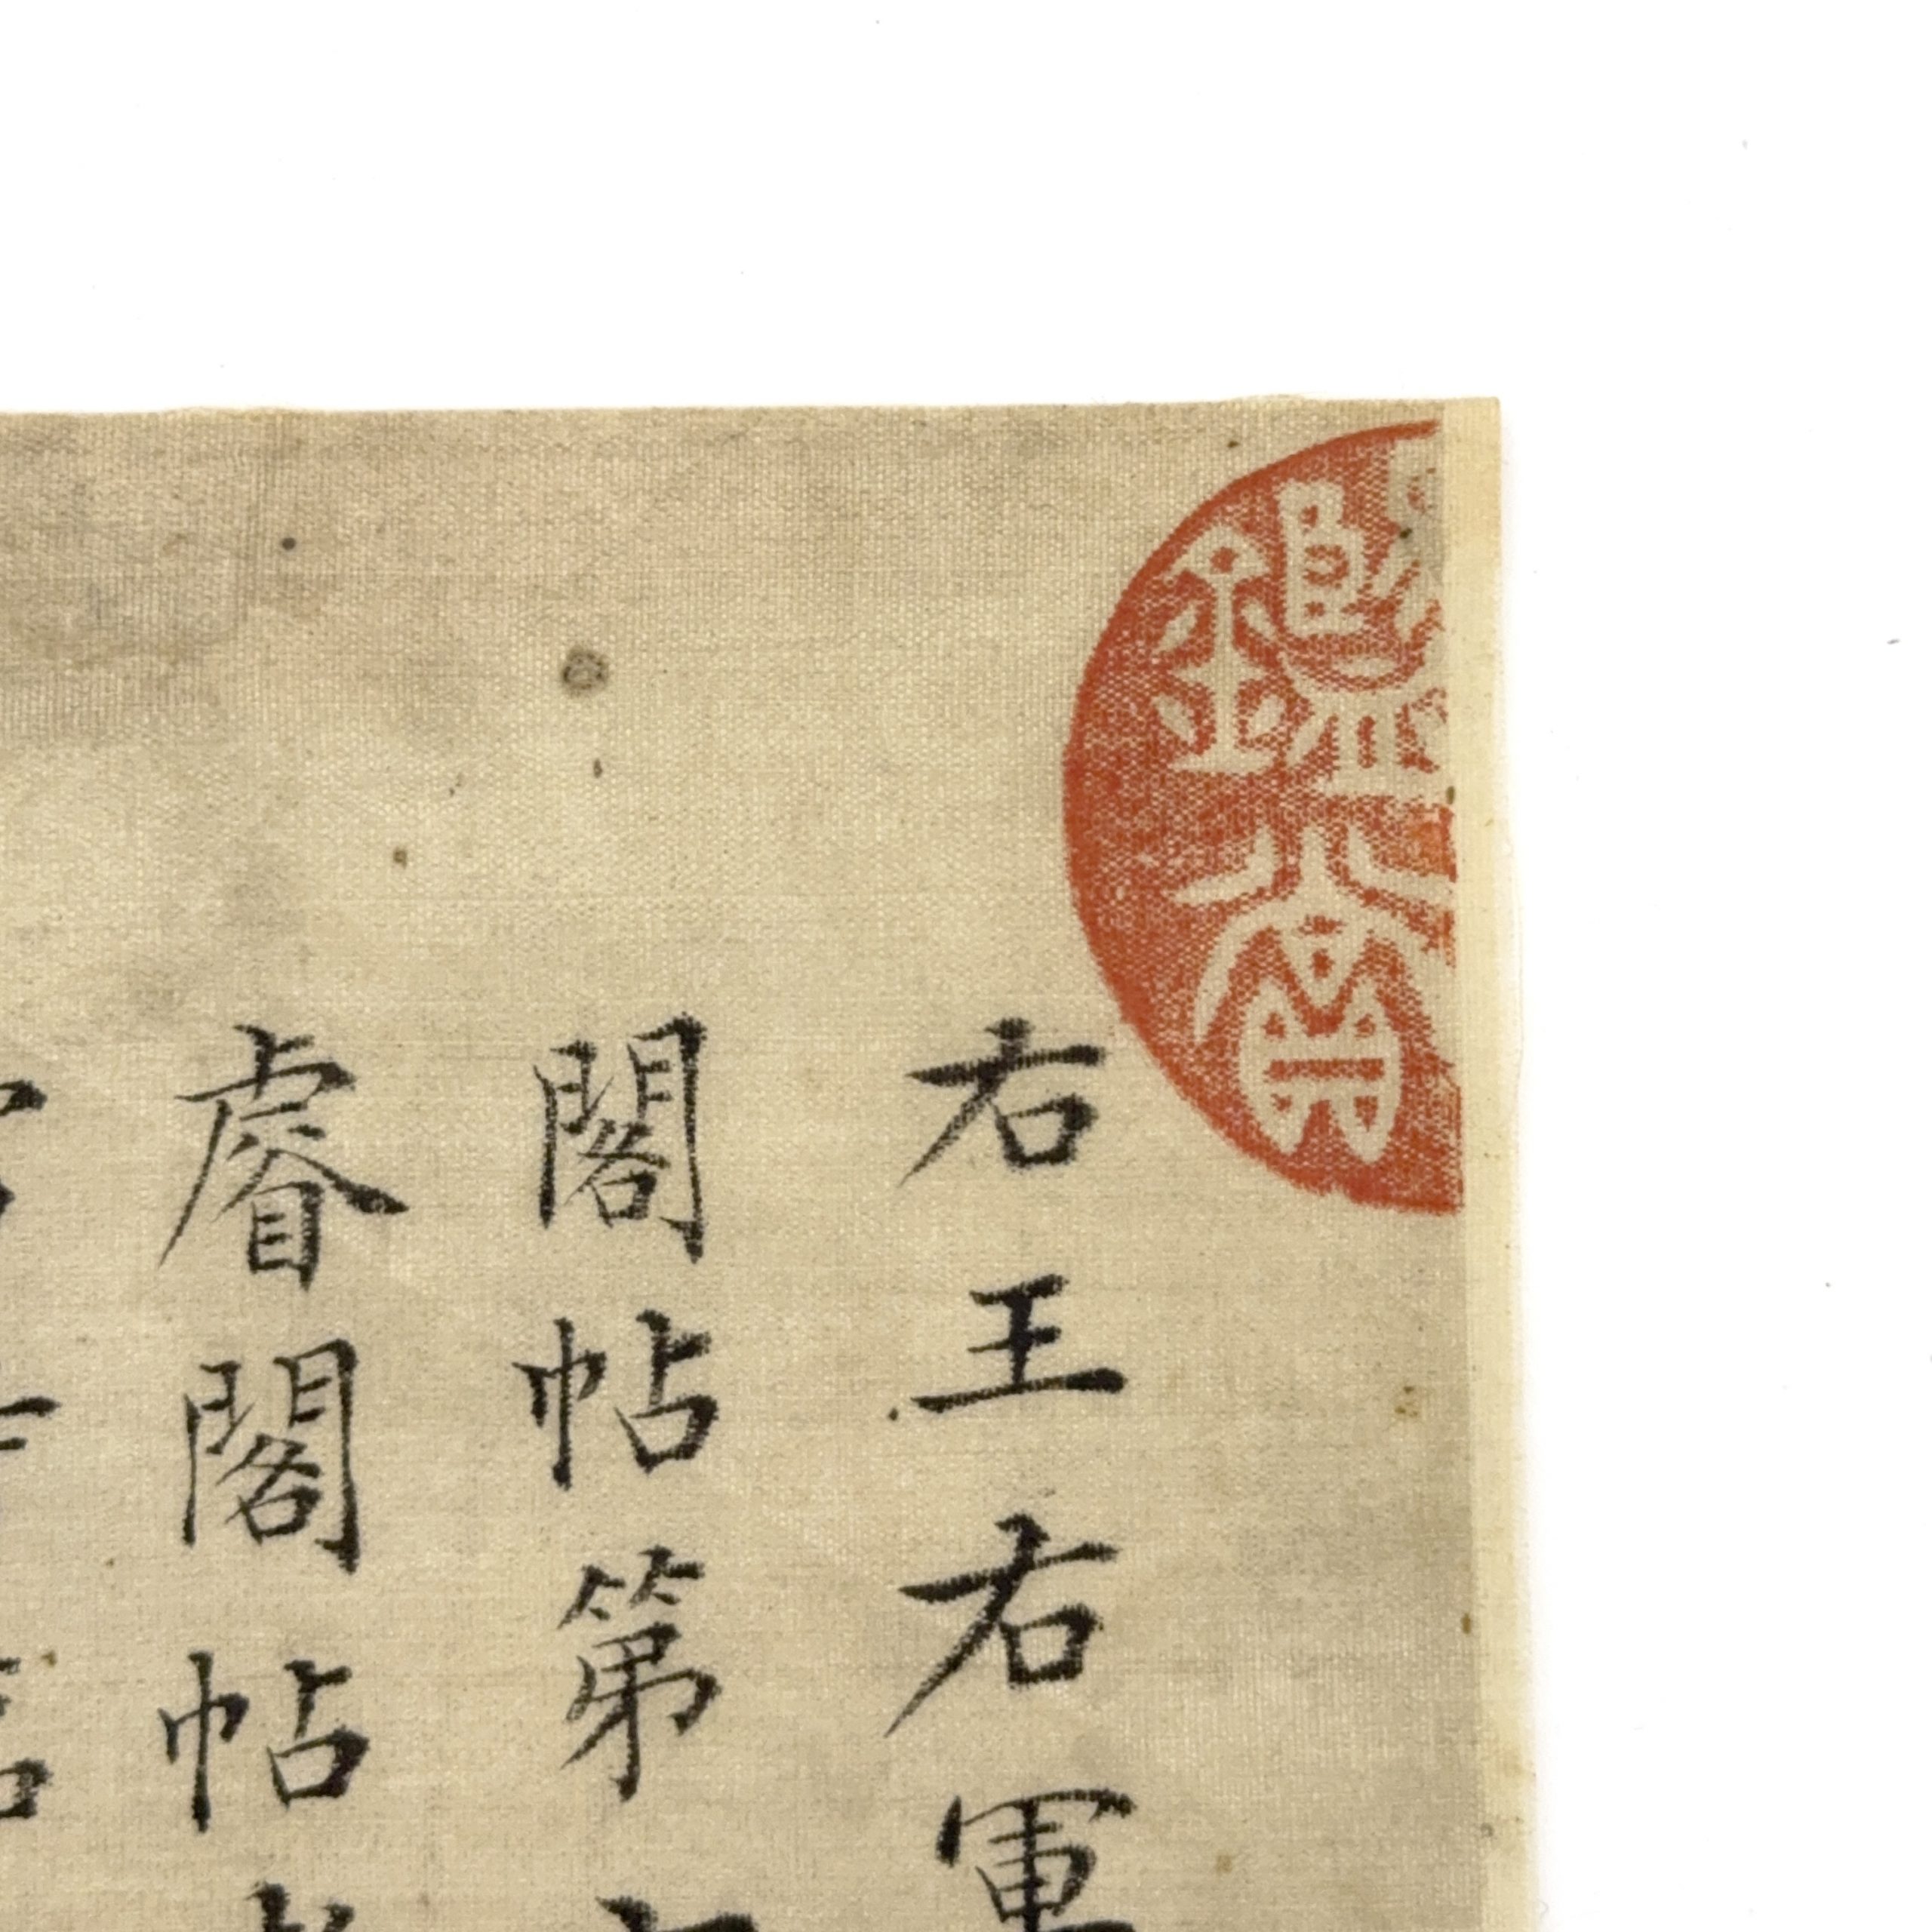 鑑賞
右王右軍
閣帖第
睿閣帖